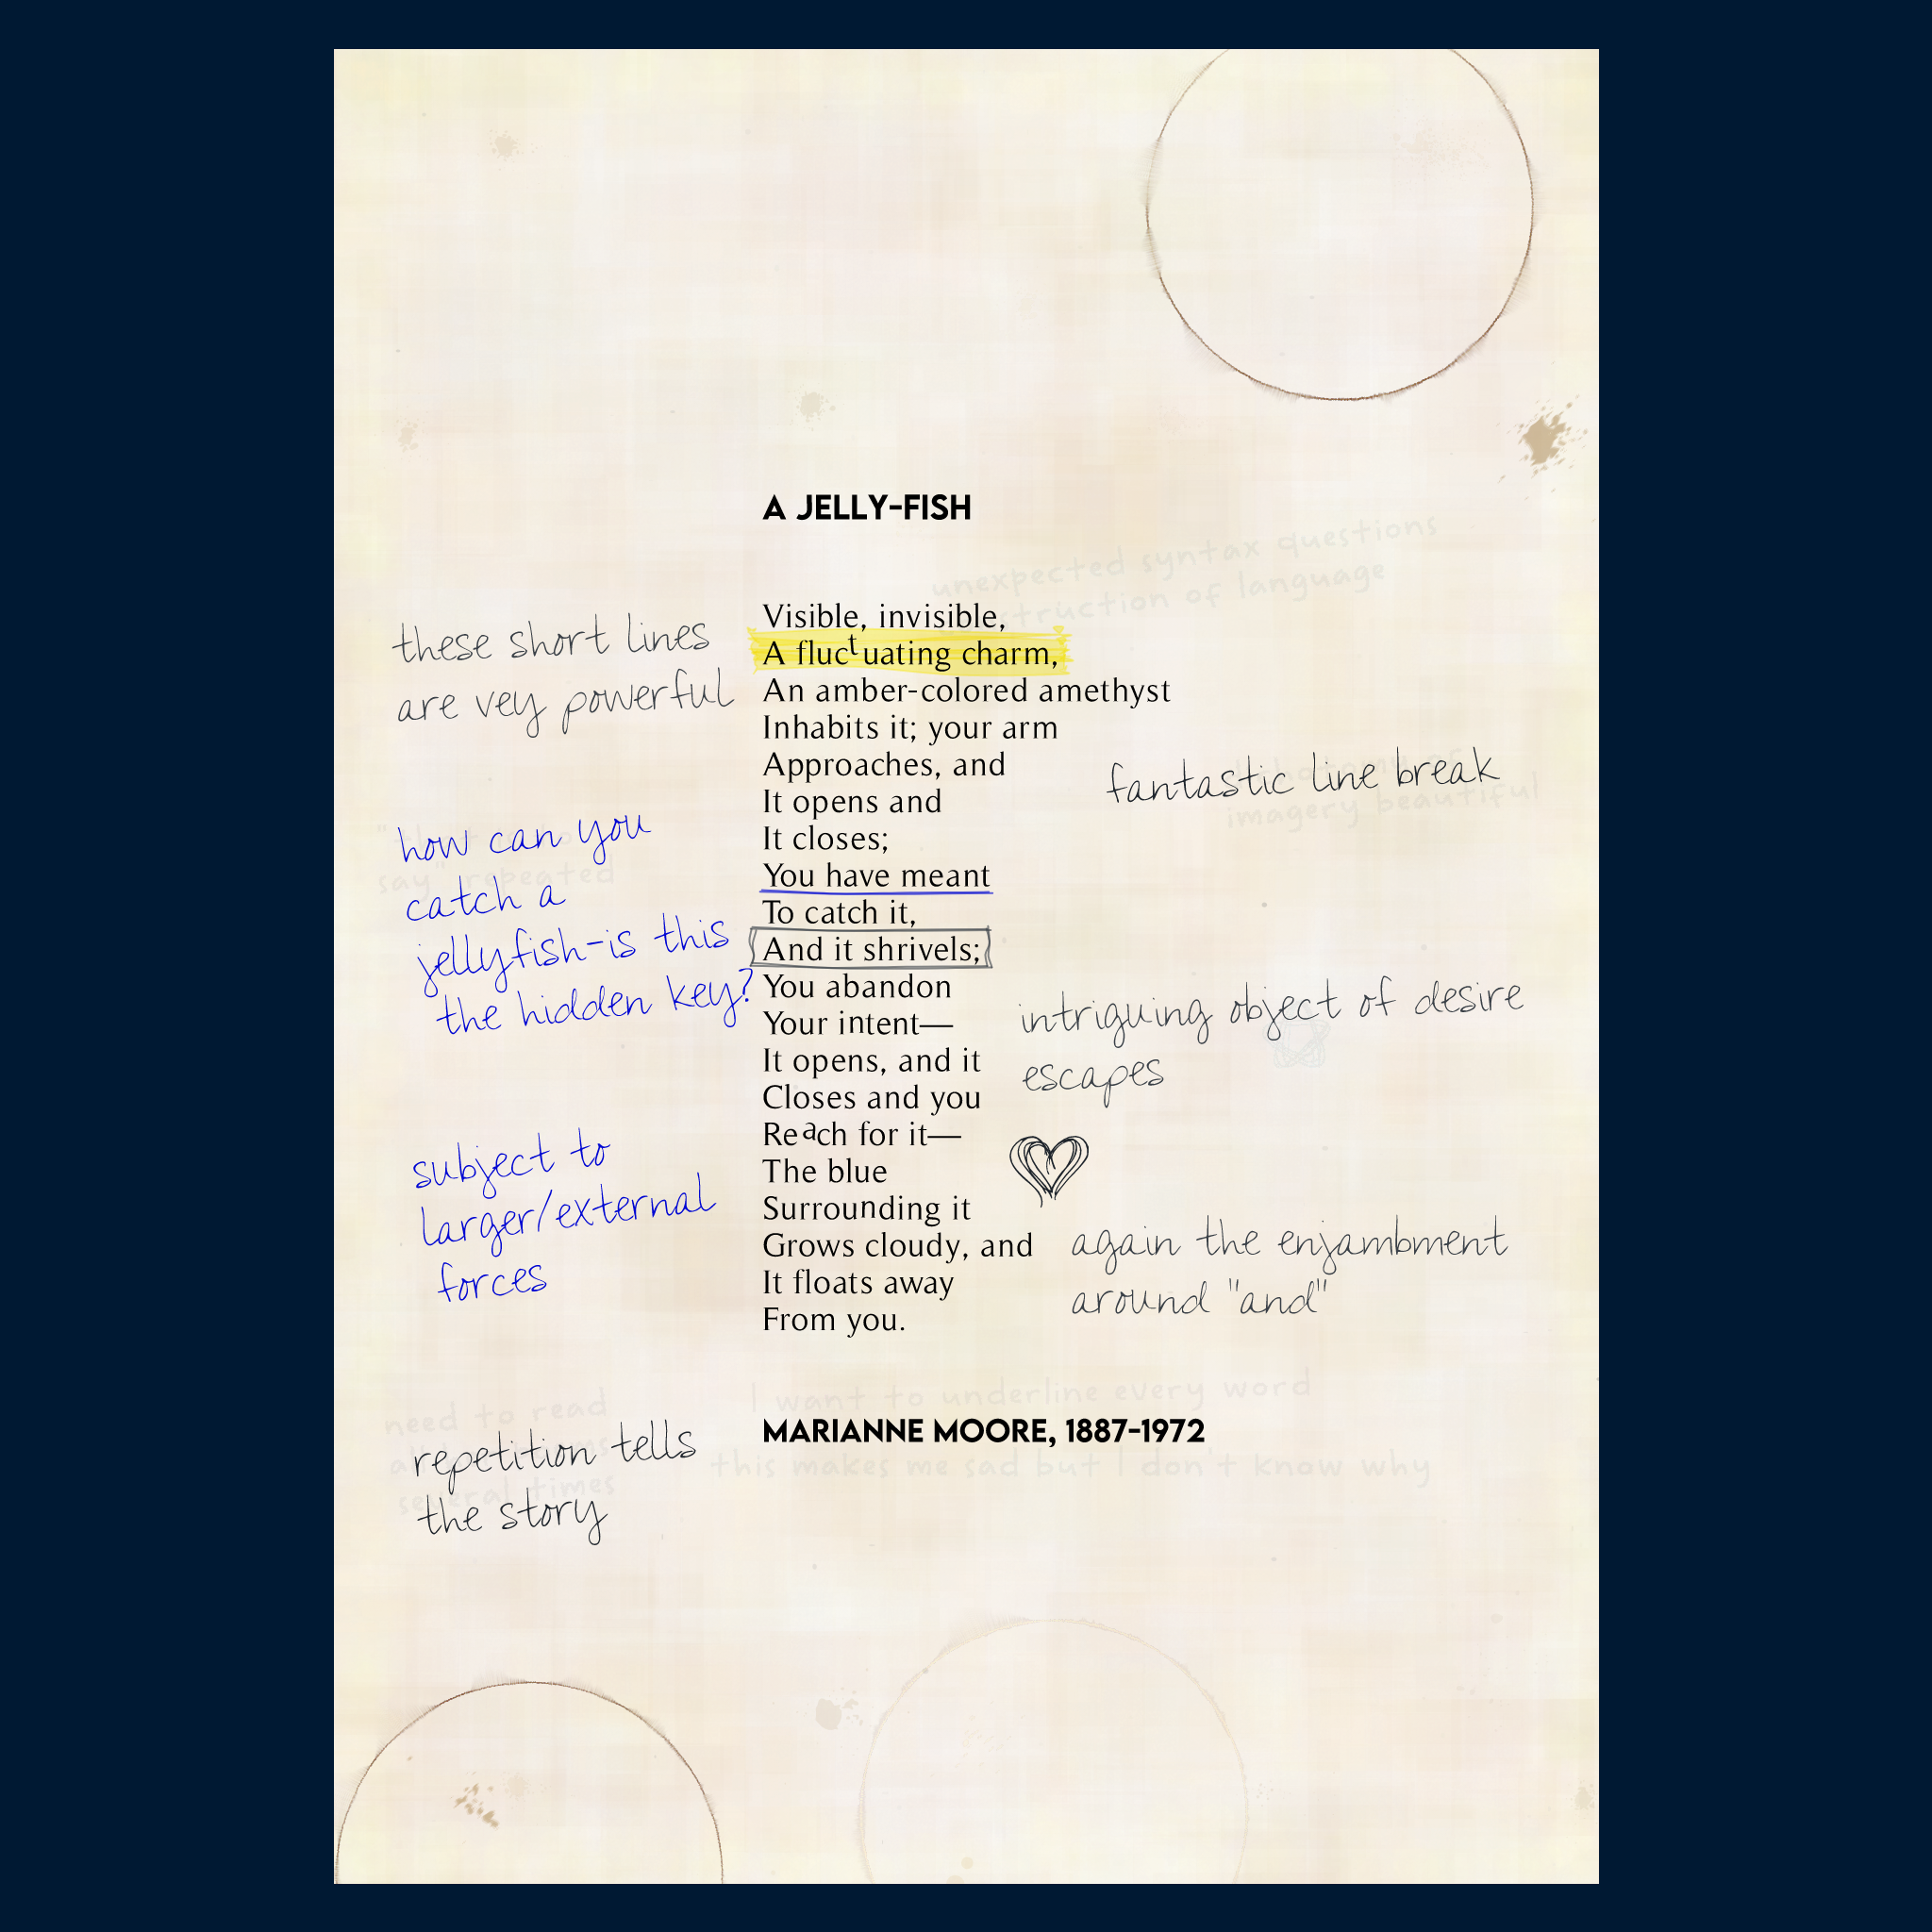 A JELLY-FISH
unexpected syntax questions
struction of language
Visible, invisible,
A fluctuating charm,
An amber-colored amethyst
Inhabits it; your arm
Approaches, and
It opens and
It closes;
You have meant
To catch it,
And it shrivels;
You abandon
Your intent—
It opens, and it
Closes and you
Reach for it—
The blue
Surrounding it
Grows cloudy, and
It floats away
From you.
these short lines
are vey powerful
fantastic line break
imagery beautiful
how can you
catch a
jellyfish-is this
the hidden key?
say" repeated
intriguing object of desire
escapes
subject to
larger/external
forces
again the enjambment
around "and"
I want to underline every word
MARIANNE MOORE, 1887-1972
this makes me sad but I don't know why
need to read
several times
repetition tells
the story